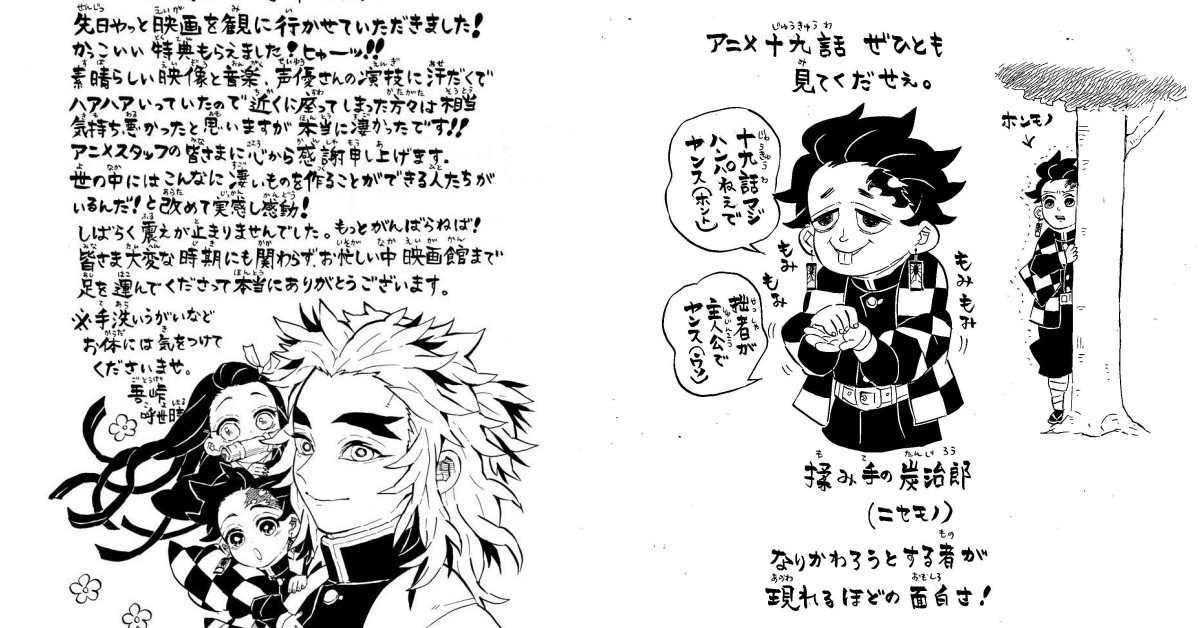 先日やっと映画を観に行かせていただきました!
かっこいい特典もらえました!ヒャーッ!!
素晴らしい映像と音楽、声優さんの演技に汗だくで
ハアハアいっていたので近くに座ってしまった方々は相当
気持ち悪かったと思いますが本当に凄かったです!!
アニメスタッフの皆さまに心から感謝申し上げます。
世の中にはこんなに凄いものを作ることができる人たちが
いるんだ!と改めて実感し感動!
しばらく震えが止まりませんでした。もっとがんばらねば!
皆さま大変な時期にも関わらず、お忙しい中映画館まで
足を運んでくださって本当にありがとうございます。
※手洗いうがいなど
お体には気をつけて
くださいませ。
吾峠
呼世晴
アニメ十九話 ぜひとも
見てくだせえ。
十九話マジ
ハンパねえで
ヤンス(ホント)
拙者が
主人公で
ヤンス(ウソ)
もみ
もみ
もみ
もみ
ホンモノ
揉み手の炭治郎
(ニセモノ)
なりかわろうとする者が
現れるほどの面白さ!